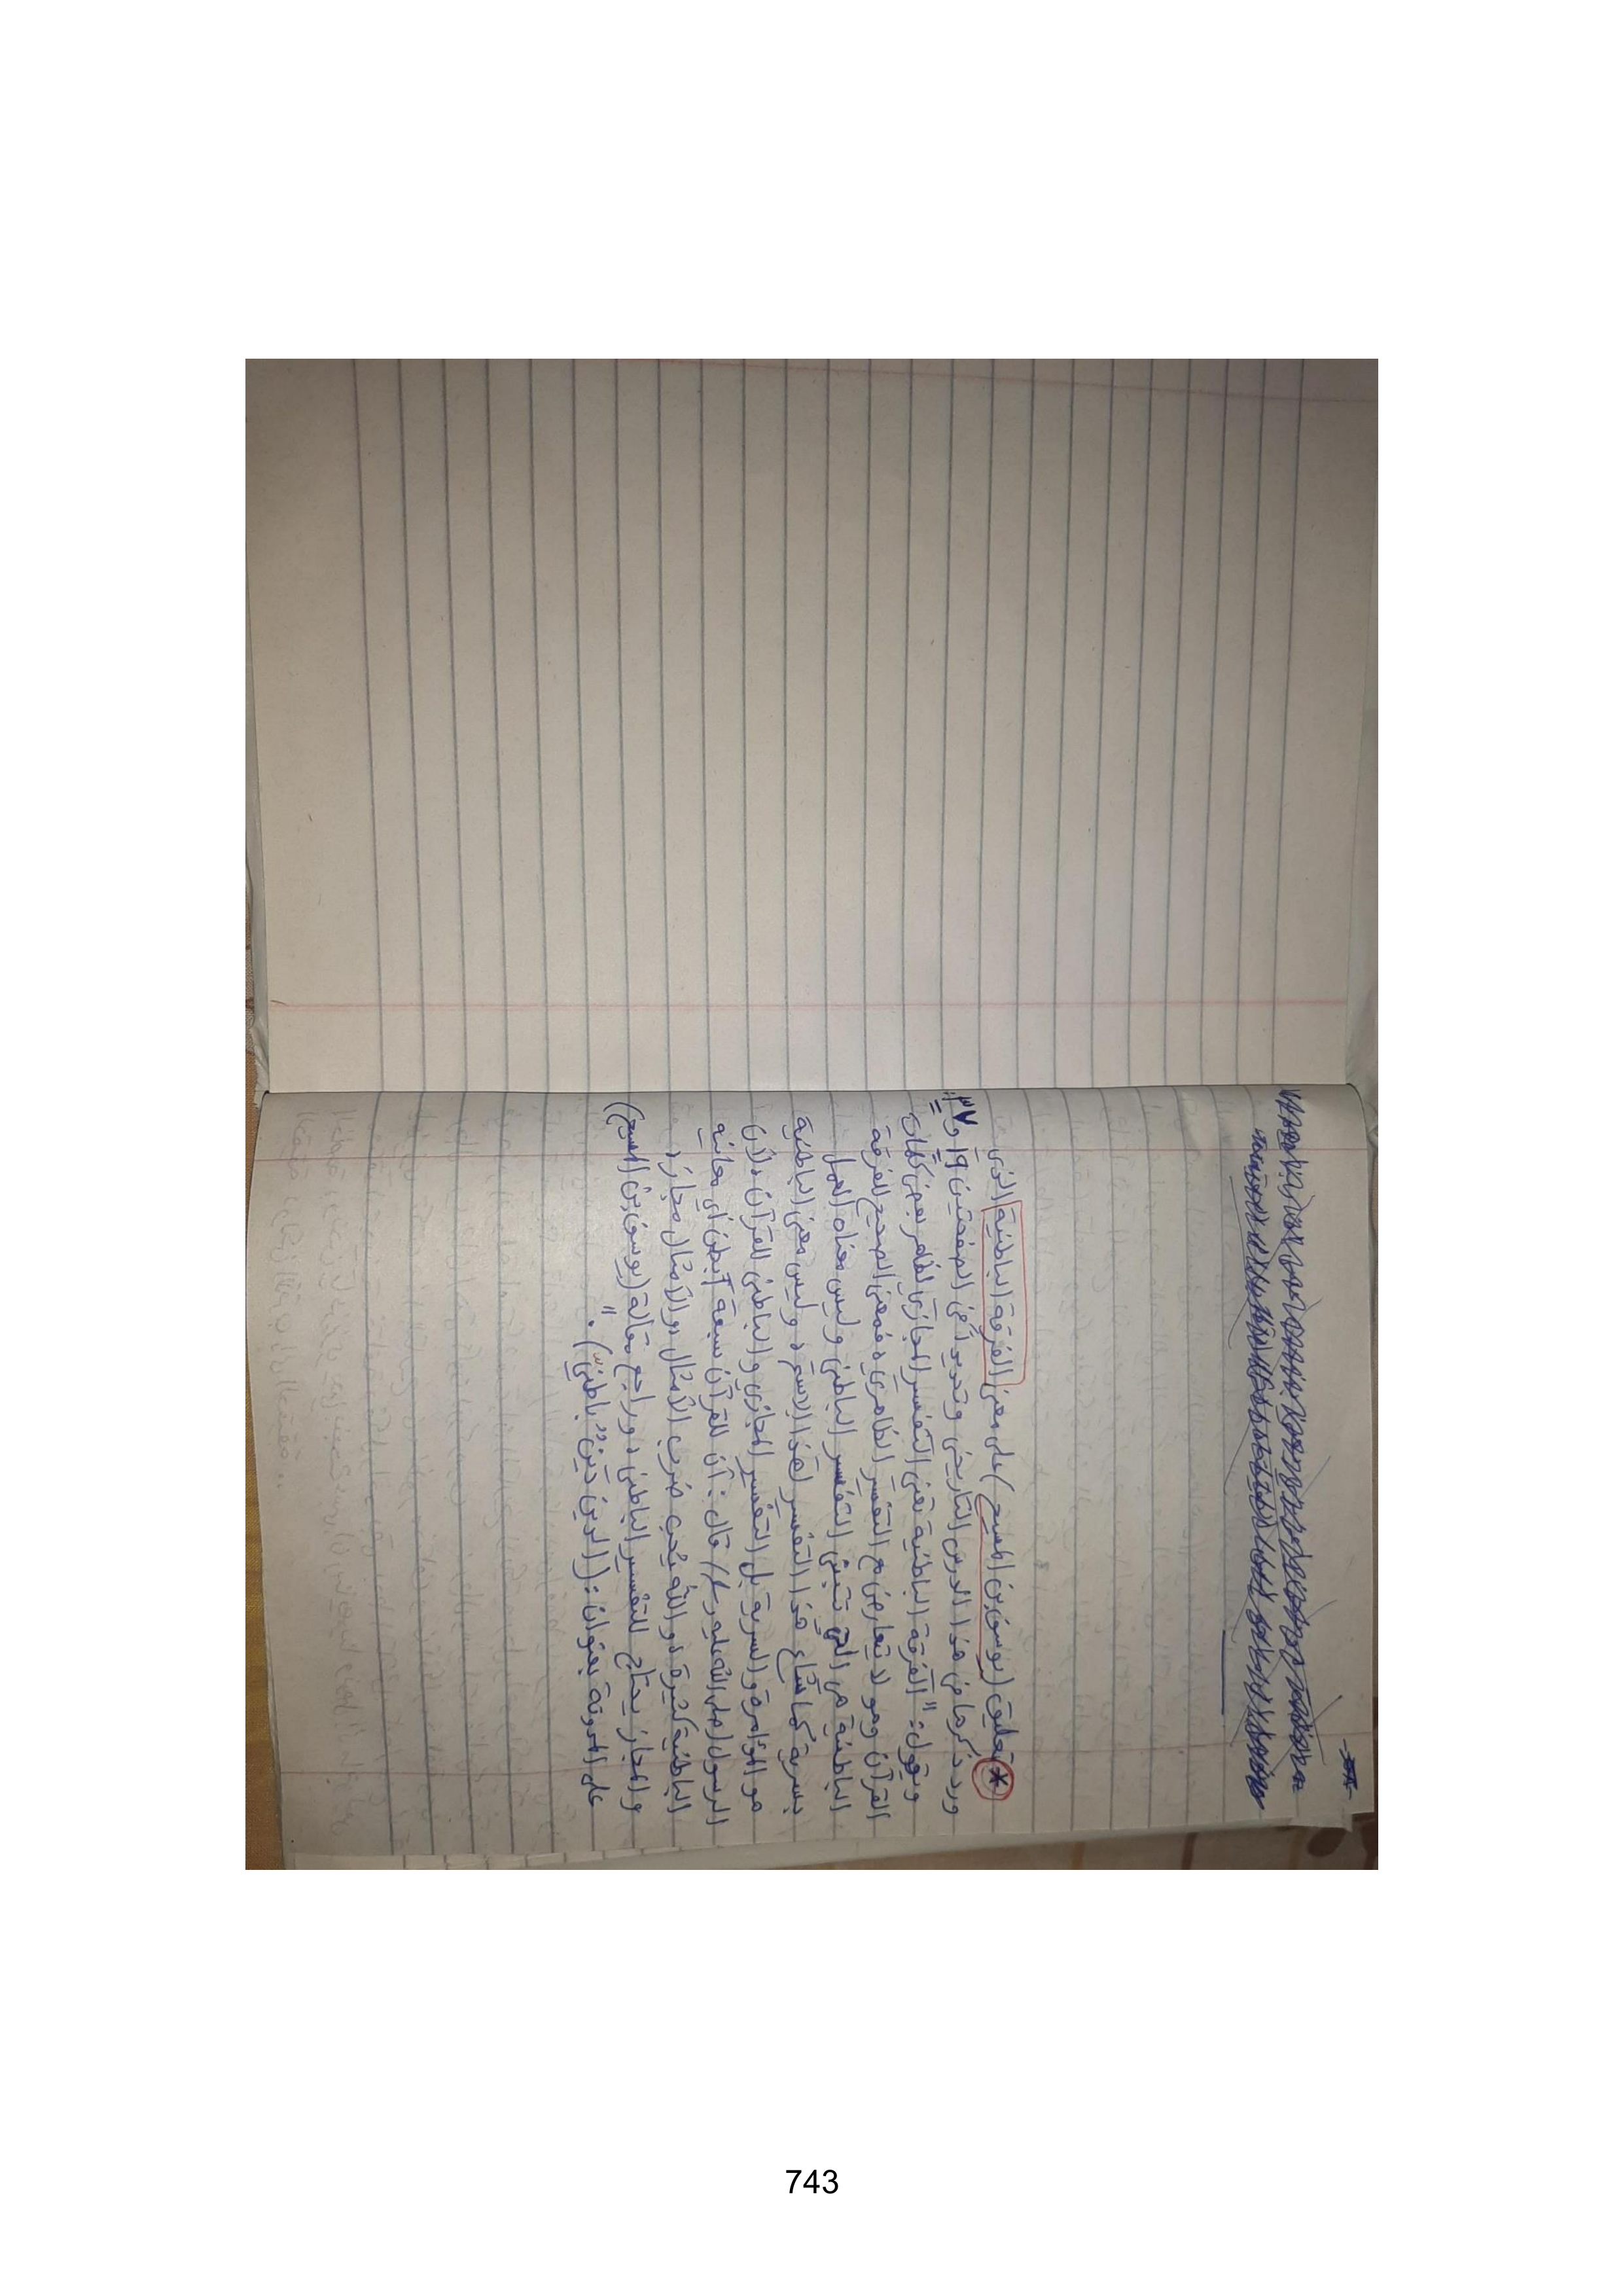 * تعليق (يوسف بن المسيح) على معنى الفرقة الباطنية الذي
ورد ذكرها في هذا الدرس التاريخي وتحديداً في الصفحتين ١٩ و ٣٧
ويقول: "الفرقة الباطنية تعني التفسير المجازي لظاهر بعض كلمات
القرآن وهو لا يتعارض مع التفسير الظاهري، فمعنى الصحيح للفرقة
الباطنية هي التي تتبنى التفسير الباطني وليس معناه العمل
بسرية كما شاع هذا التفسير لهذا الاسم، وليس معنى الباطنية
هو المؤامرة والسرية بل التفسير المجازي والباطني للقرآن، لأن
الرسول (صلى الله عليه وسلم) قال: أن للقرآن سبعة أبطن أي معانيه
الباطنية كثيرة، والله يحب ضرب الأمثال، والأمثال مجاز،
والمجاز يحتاج للتفسير الباطني، وراجع مقالة (يوسف بن المسيح)
على المدونة بعنوان: (الدين دين باطني)."
743